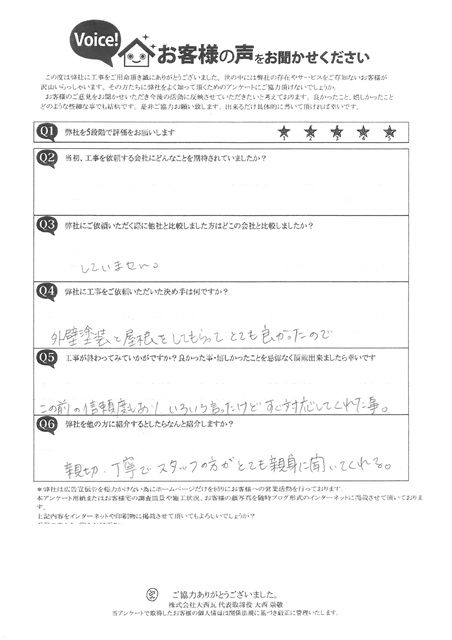 Voice!
お客様の声をお聞かせください
この度は弊社に工事をご用命頂き誠にありがとうございました。世の中には弊社の存在やサービスをご存知ないお客様が
沢山いらっしゃいます。その方たちに弊社をよく知って頂くためのアンケートにご協力頂けないでしょうか。
お客様のご意見をお聞かせいただき今後の活動に反映させていただきたいと考えております。良かったこと、嬉しかったこと
どのような些細な事でも結構です。是非ご協力お願い致します。出来るだけ具体的に書いて頂ければ幸いです。
Q1 弊社を5段階で評価をお願いします
1 2 3 4 5
Q2 当初、工事を依頼する会社にどんなことを期待されていましたか？
Q3 弊社にご依頼いただく際に他社と比較しました方はどこの会社と比較しましたか？
していません。
Q4 弊社に工事をご依頼いただいた決め手は何ですか？
外壁塗装と屋根をしてもらって とても良かったので
Q5 工事が終わってみていかがですか？良かった事・嬉しかったことを忌憚なく御聞出来ましたら幸いです
この前の信頼度もあり いろいろ言ったけど すぐ対応してくれた事。
Q6 弊社を他の方に紹介するとしたらなんと紹介しますか？
親切、丁寧で スタッフの方がとても親身に聞いてくれる。
＊弊社は広告宣伝費を極力かけない為にホームページだけを頼りにお客様への営業活動を行っております。
本アンケート用紙またはお客様宅の調査風景や施工状況、お客様の顔写真を随時ブログ形式のインターネットに掲載させて頂いております。
上記内容をインターネットや印刷物に掲載させて頂いてもよろしいでしょうか？
ご協力ありがとうございました。
株式会社大西瓦 代表取締役 大西 崇敬
当アンケートで取得したお客様の個人情報は関係法規に基づき適正に管理いたします。